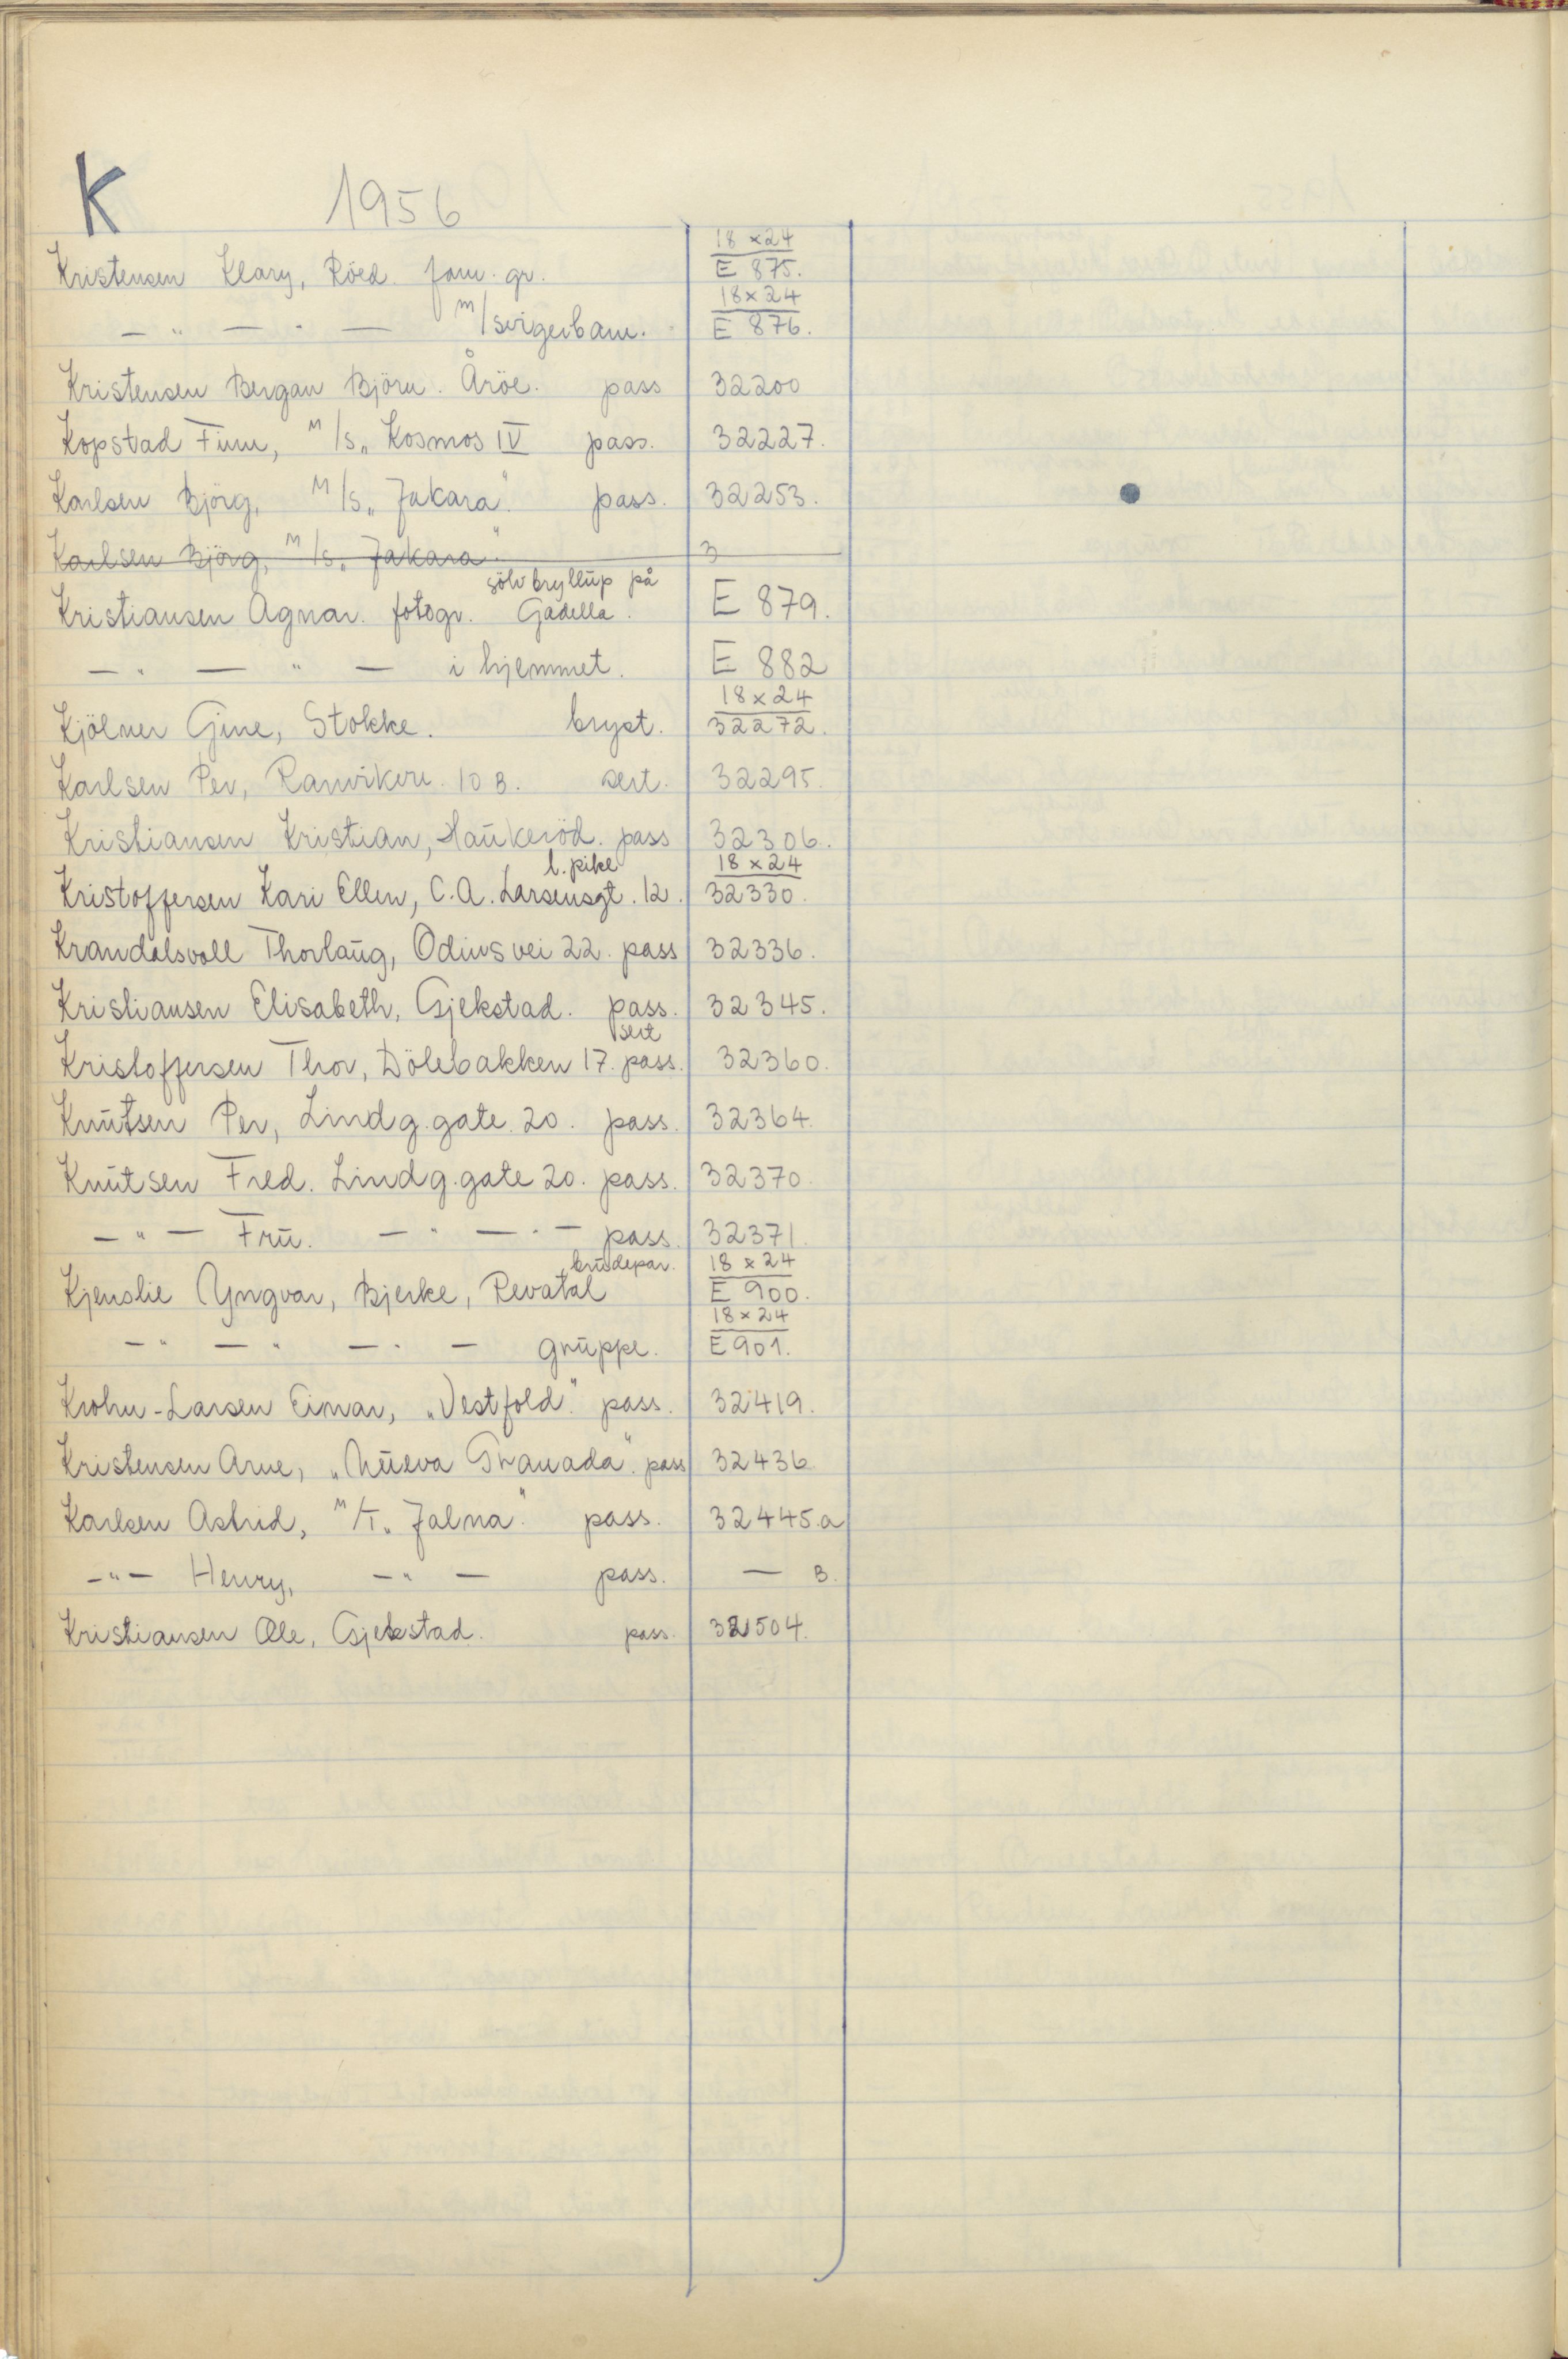 K 1956
18 x 24
Kristensen Klary, Röed. fam. gr. E 875.
18 x 24
— " — " — m/svigerbarn. E 876.
Kristensen Bergan Björn. Åröe. pass 32200
Kopstad Finn, M/S „Kosmos IV pass. 32227.
Karlsen Björg, M/S „Jakara". pass. 32253.
Karlsen Björg, M/S „Jakara". 3
sölvbryllup på
Kristiansen Agnar. fotogr. Gadella. E 879.
— " — " — i hjemmet. E 882
18 x 24
Kjölner Gine, Stokke. bryst. 32272.
Karlsen Per, Ranvikvn. 10 B. sert. 32295.
Kristiansen Kristian, Haukeröd. pass 32306.
l. pike 18 x 24
Kristoffersen Kari Ellen, C.A. Larsensgt. 12. 32330.
Krandalsvoll Thorlaug, Odins vei 22. pass 32336.
Kristiansen Elisabeth, Gjekstad. pass. 32345.
sert
Kristoffersen Thor, Dölebakken 17. pass. 32360.
Knutsen Per, Lindg. gate. 20. pass. 32364.
Knutsen Fred. Lindg. gate 20. pass. 32370.
— " — Fru. — " — " — pass. 32371.
brudepar. 18 x 24
Kjenslie Yngvar, Bjerke, Revatal E 900.
18 x 24
— " — " — " — gruppe. E 901.
Krohn-Larsen Einar, „Vestfold". pass. 32419.
Kristensen Arne, „Nueva Granada". pass 32436
Karlsen Astrid, M/T. „Jalna". pass. 32445.a
— " — Henry, — " — pass. — B.
Kristiansen Ole, Gjekstad. pass. 32504.